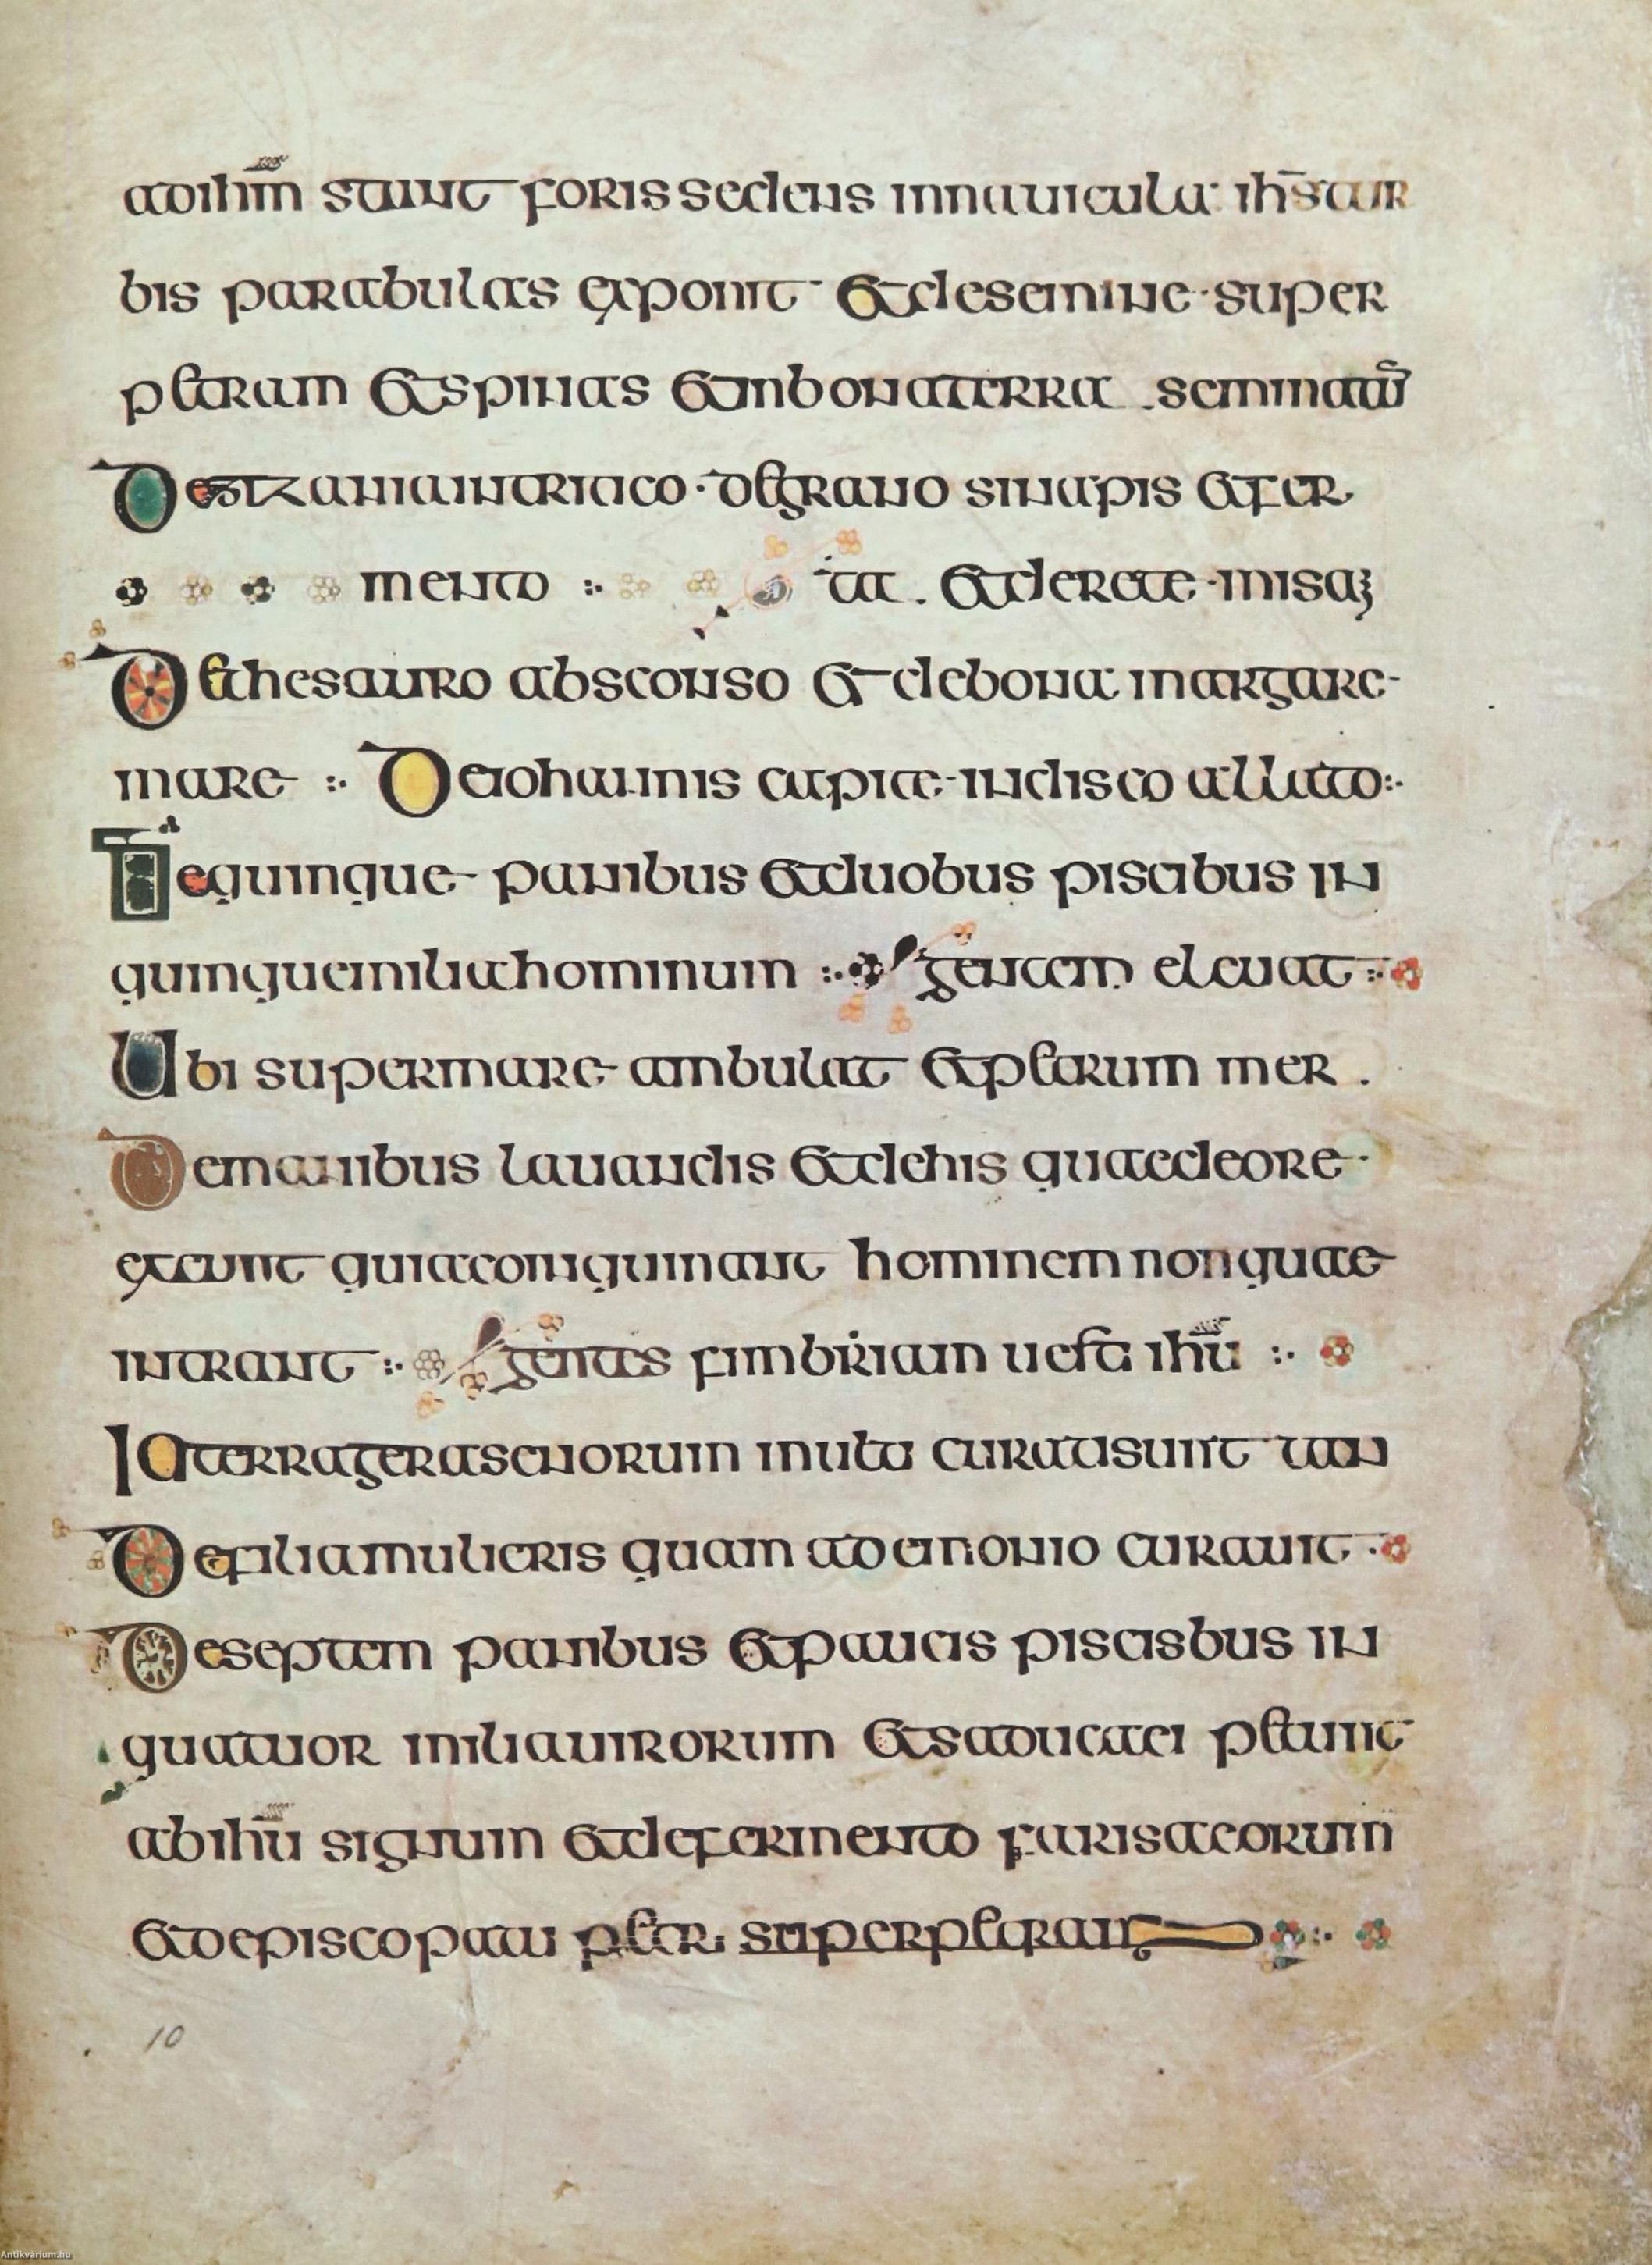 adihm̅ stant foris sedens in nauicula ih̅s tur
bis parabulas exponit et de semine super
petram et spinas et in bona terra seminatū
De zizania in tritico de grano sinapis et fer
mento ta. et de rete misa
De thesauro absconso et de bona margare
mare De iohannis capite in disco allato
De quinque panibus et duobus piscibus in
quinque milia hominum gentem eleuat
Ubi super mare ambulat et petrum mer .
De manibus lauandis et de his quae de ore
exeunt quia coniquinant hominem non quae
intrant gentes fimbriam uesti ih̅u
In terra gerasenorum multi curati sunt tan
De filia mulieris quam a demonio curauit
De septem panibus et paucis piscisbus in
quattuor milia uirorum et saducaei petunt
ab ih̅u signum et de fermento farisaeorum
et de episcopatu petri super petram
10
Antikvarium.hu